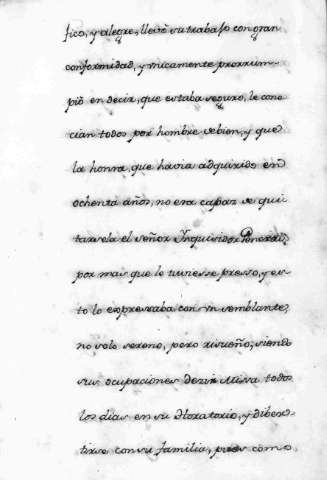 fico, y alegre, llevò su trabajo con gran
conformidad, y unicamente prorrum-
piò en decir, que estaba seguro, le cono-
cian todos por hombre de bien, y que
la honra, que havia adquirido en
ochenta años, no era capaz de qui-
tarsela el señor Inquisidor General,
por mais que lo tuviesse presso, y es-
to lo expressaba con vn semblante,
no solo sereno, pero risueño; siendo
sus ocupaciones dezir Missa todos
los dias en su Horatorio, y diber-
tirse con su familia, pues como